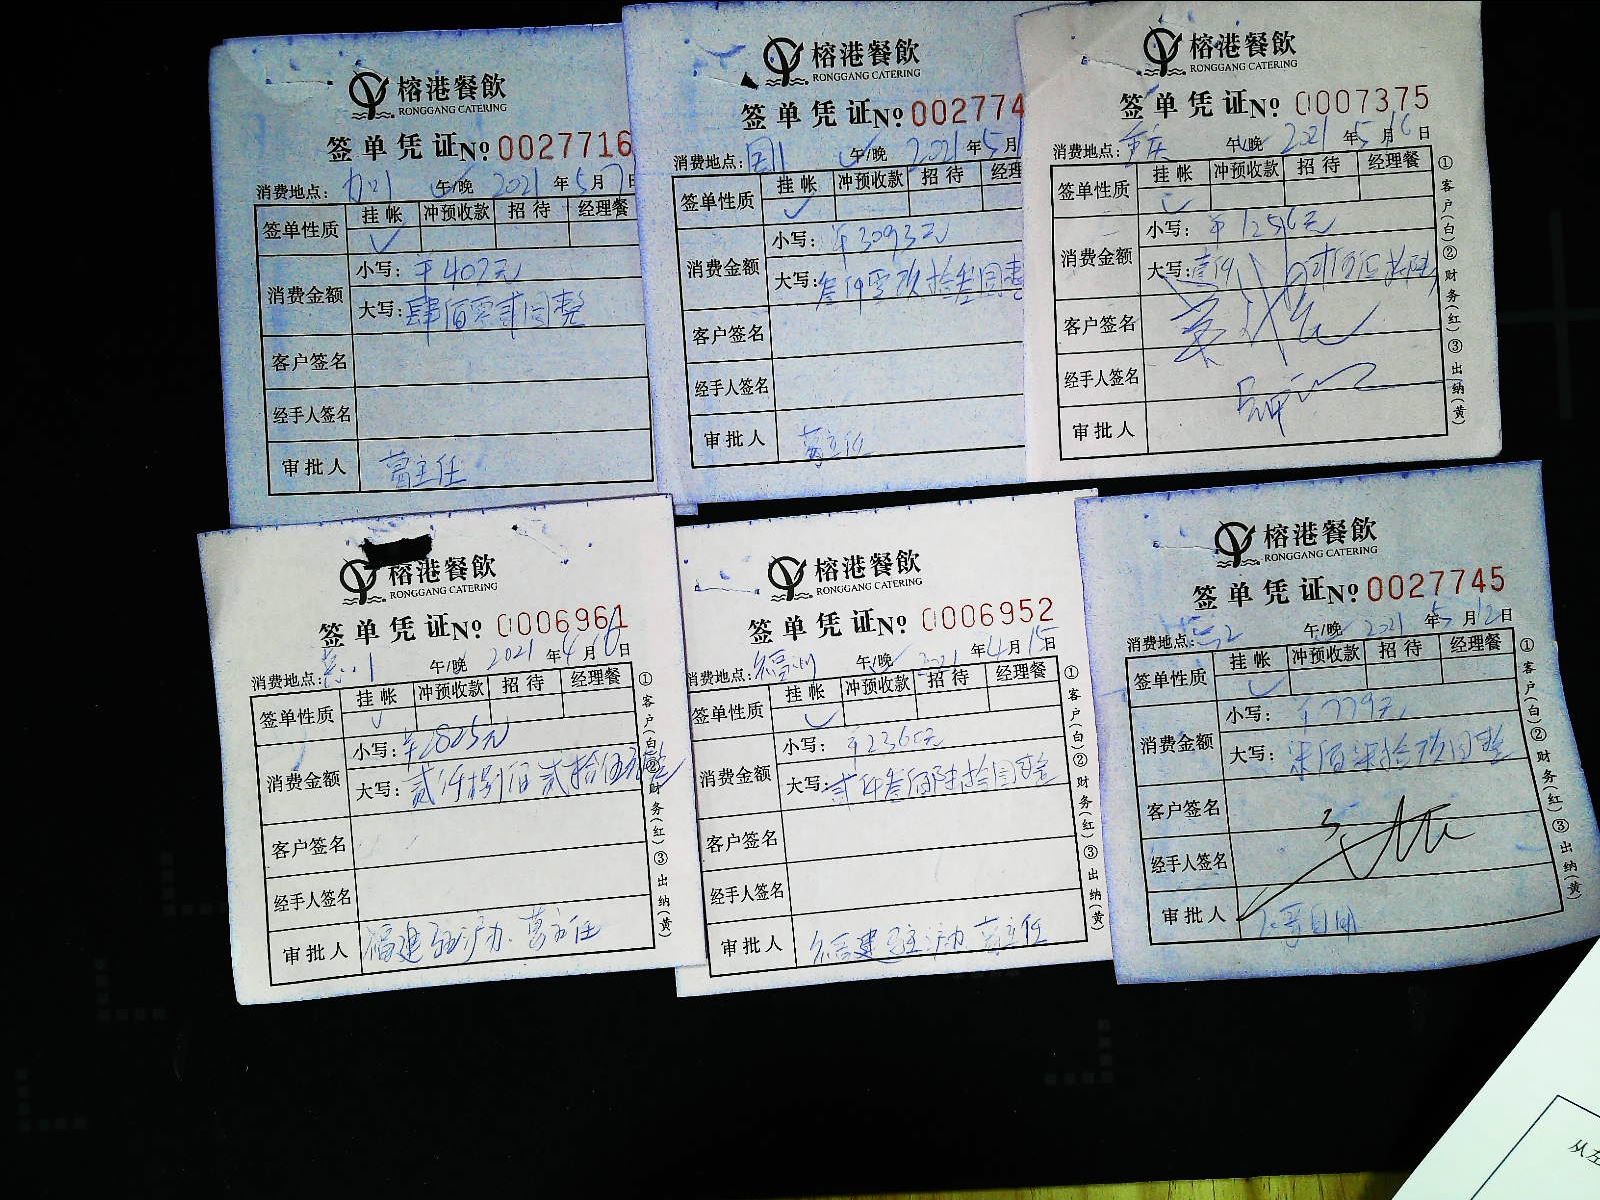 榕港餐飲
RONGGANG CATERING
签单凭证 № 0027716
消费地点: 午/晚 2021 年 5 月 7 日
签单性质 挂帐 冲预收款 招待 经理餐
✓
消费金额 小写: ¥402元
大写: 肆佰零贰圆整
客户签名
经手人签名
审批人 葛主任
榕港餐飲
RONGGANG CATERING
签单凭证 № 002774
消费地点: 午/晚 2021 年 5 月
签单性质 挂帐 冲预收款 招待 经理
✓
消费金额 小写: ¥3093元
大写: 叁仟零玖拾叁圆整
客户签名
经手人签名
审批人 葛主任
榕港餐飲
RONGGANG CATERING
签单凭证 № 0007375
消费地点: 重庆 午/晚 2021 年 5 月 16 日
签单性质 挂帐 冲预收款 招待 经理餐
✓
消费金额 小写: ¥1256元
大写: 壹仟 贰佰伍拾陆
客户签名
经手人签名
审批人
①客户(白)②财务(红)③出纳(黄)
榕港餐飲
RONGGANG CATERING
签单凭证 № 0006961
消费地点: 午/晚 2021 年 4 月 16 日
签单性质 挂帐 冲预收款 招待 经理餐
✓
消费金额 小写: ¥2825元
大写: 贰仟捌佰贰拾伍元整
客户签名
经手人签名
审批人 福建驻沪办.葛主任
①客户(白)②财务(红)③出纳(黄)
榕港餐飲
RONGGANG CATERING
签单凭证 № 0006952
消费地点: 福州 午/晚 2021 年 4 月 15 日
签单性质 挂帐 冲预收款 招待 经理餐
✓
消费金额 小写: ¥2360元
大写: 贰仟叁佰陆拾圆整
客户签名
经手人签名
审批人 福建驻沪办.葛主任
①客户(白)②财务(红)③出纳(黄)
榕港餐飲
RONGGANG CATERING
签单凭证 № 0027745
消费地点: 午/晚 2021 年 5 月 12 日
签单性质 挂帐 冲预收款 招待 经理餐
✓
消费金额 小写: ¥779元
大写: 柒佰柒拾玖圆整
客户签名
经手人签名
审批人
①客户(白)②财务(红)③出纳(黄)
从左